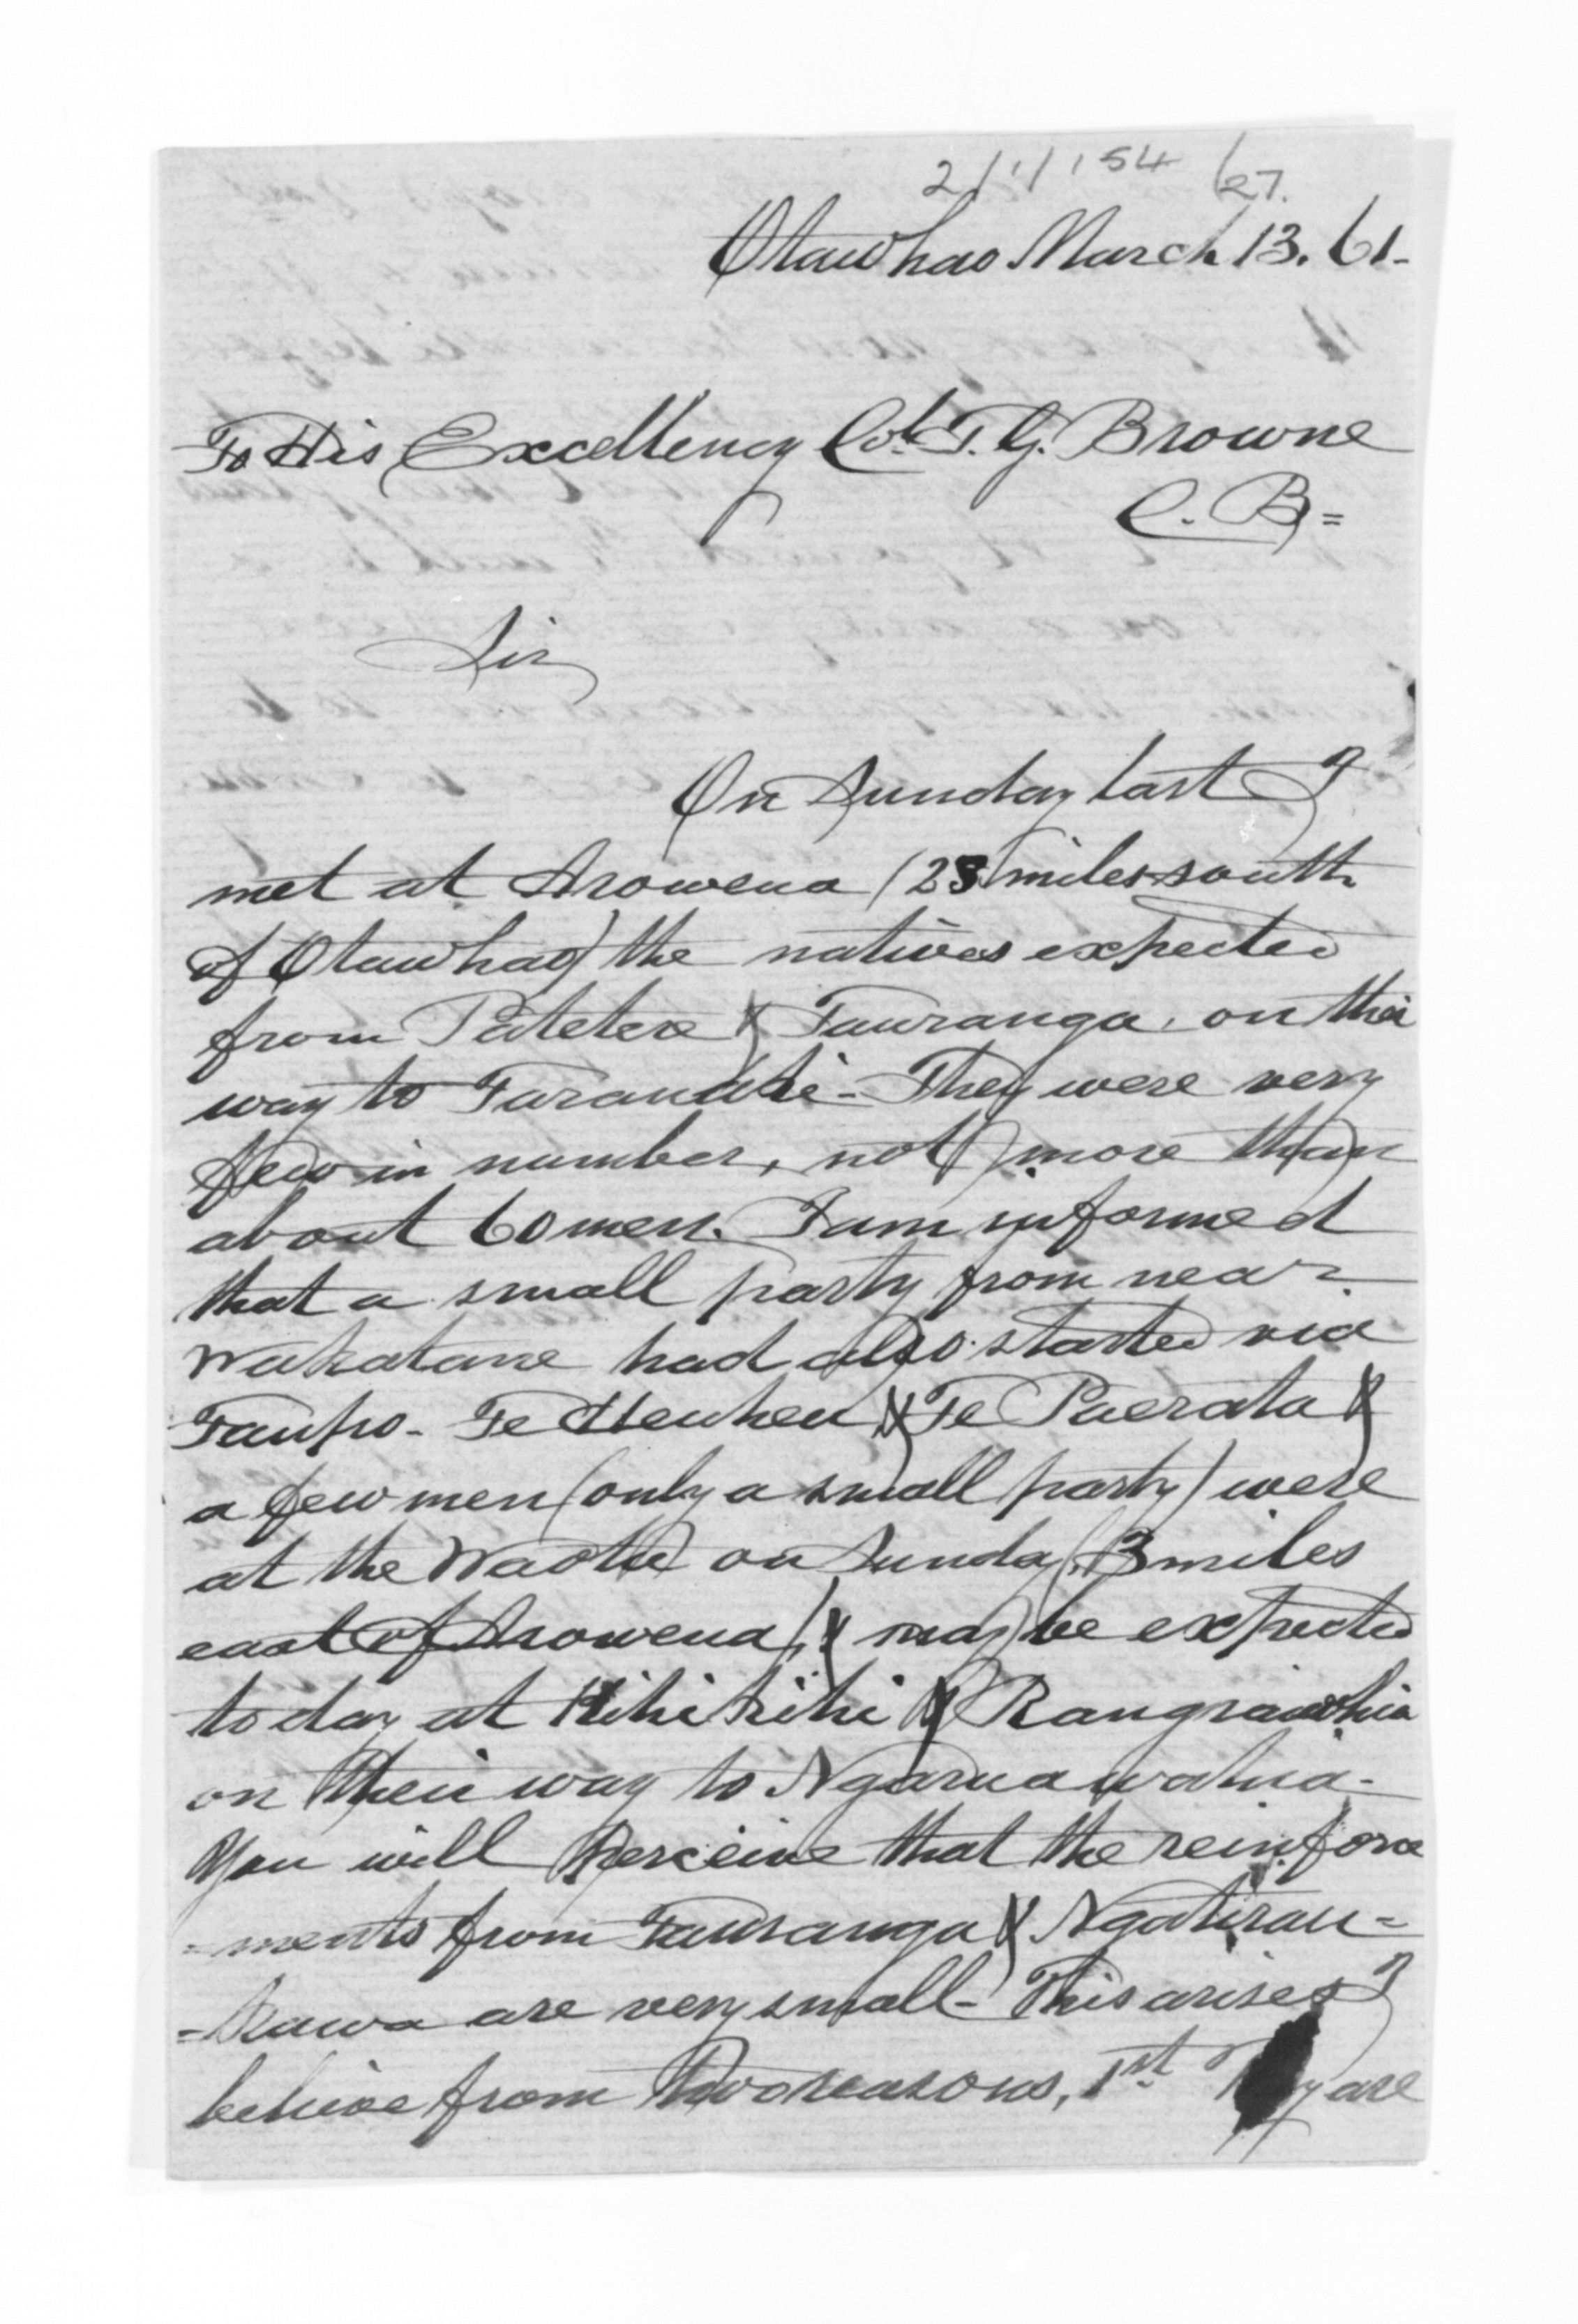 2/1/154 /27.
Otawhao March 13. 61-
To His Excellency Col. T. G. Browne
C. B=
Sir
On Sunday last I
met at Arowena (23 miles south
of Otawhao) the natives expected
from Patetere & Tauranga on their
way to Taranaki - They were very
few in number, not more than
about 60 men. I am informed
that a small party from near
Wakatane had also started via
Taupo - Te Heuheu & Te Paerata &
a few men (only a small party) were
at the Waotu on Sunday (13 miles
east of Arowena) & may be expected
today at Kihikihi & Rangiaowhia
on their way to Ngaruawahia -
You will perceive that the reinforce
=ments from Tauranga & Ngatirau=
=kawa are very small - This arises I
believe from two reasons, 1st They are